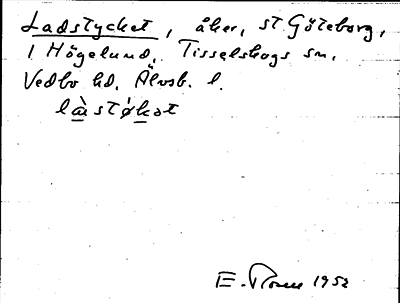 Ladstycket, åker, st Göteborg,
1 Högelund, Tisselskogs sn,
Vedbo hd, Älvsb. l.
E. Rosen 1952